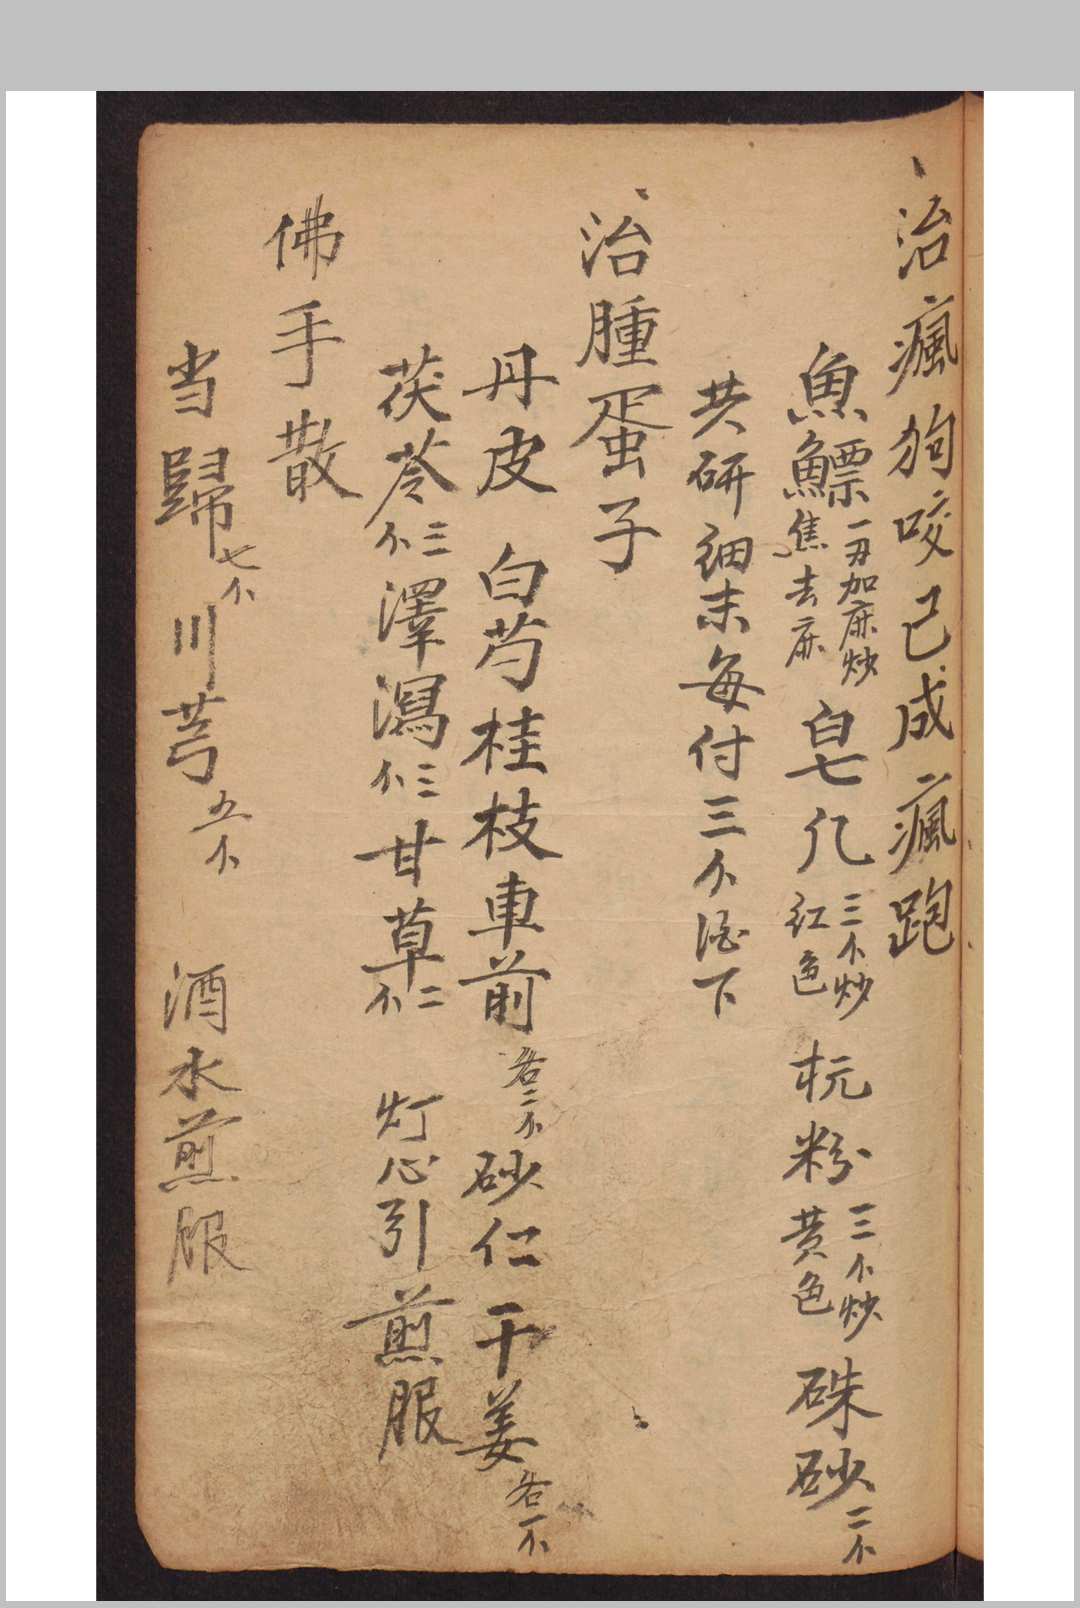 治瘋狗咬已成瘋跑
魚鰾一刄加麻炒焦去麻 皂七几三个炒紅色 杬粉三个炒黄色 硃砂二个
共研細末每付三个酒下
治腫蛋子
丹皮 白芍桂枝車前各二个砂仁干姜各一个
茯苓三个澤瀉三个甘草二个 灯心引煎服
佛手散
当歸七个 川芎五个 酒水煎服